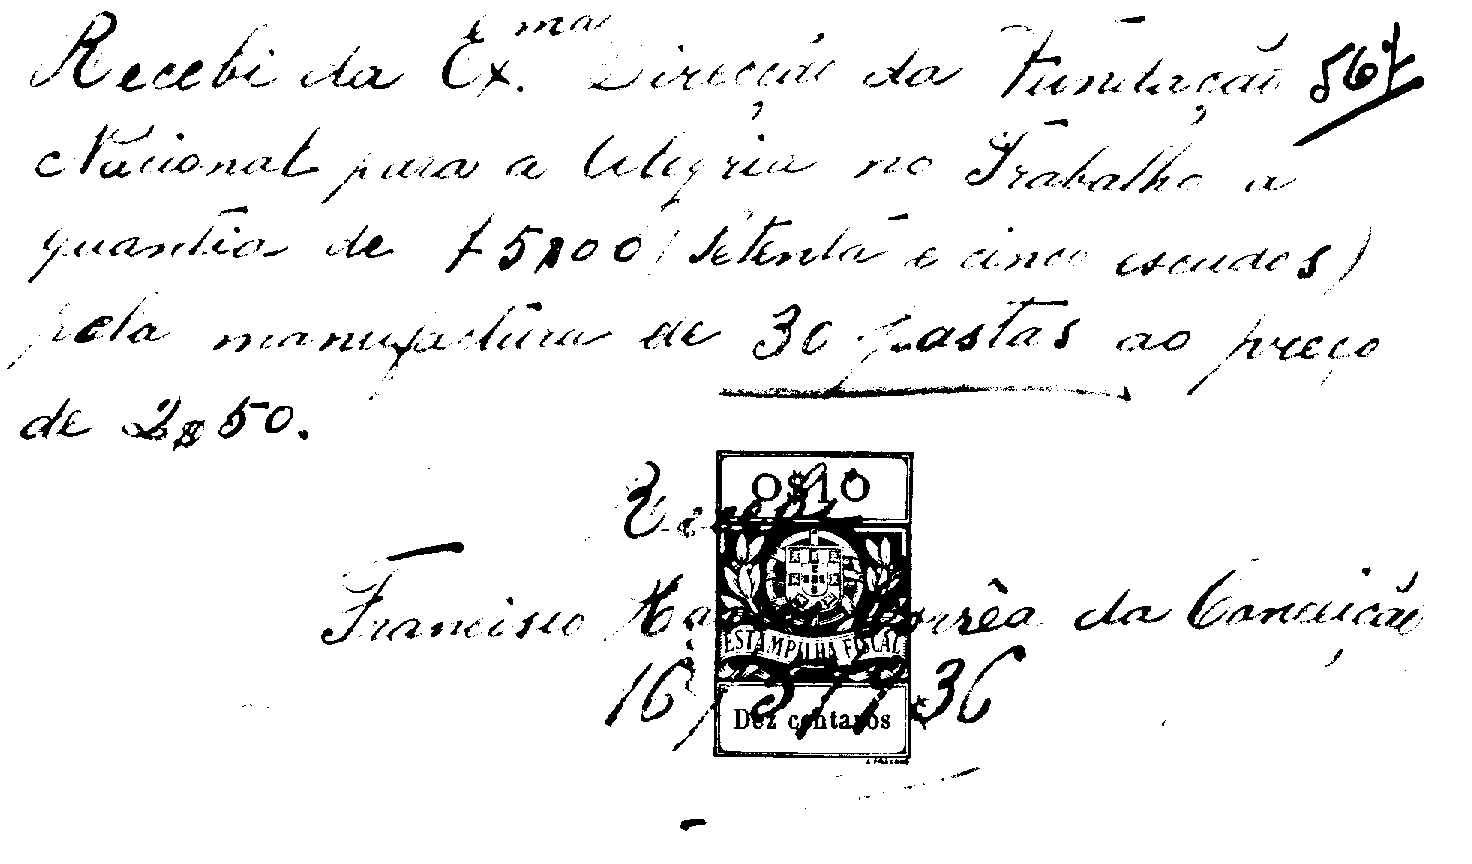 Recebi da Ex.ma Direcção da Fundação 567
Nacional para a Alegria no Trabalho a
quantia de 75$00 (Setenta e cinco escudos)
pela manufactura de 30 pastas ao preço
de 2$50.
0$10
Francisco Corrêa da Conceição
ESTAMPILHA FISCAL
16/3/1936
Dez centavos